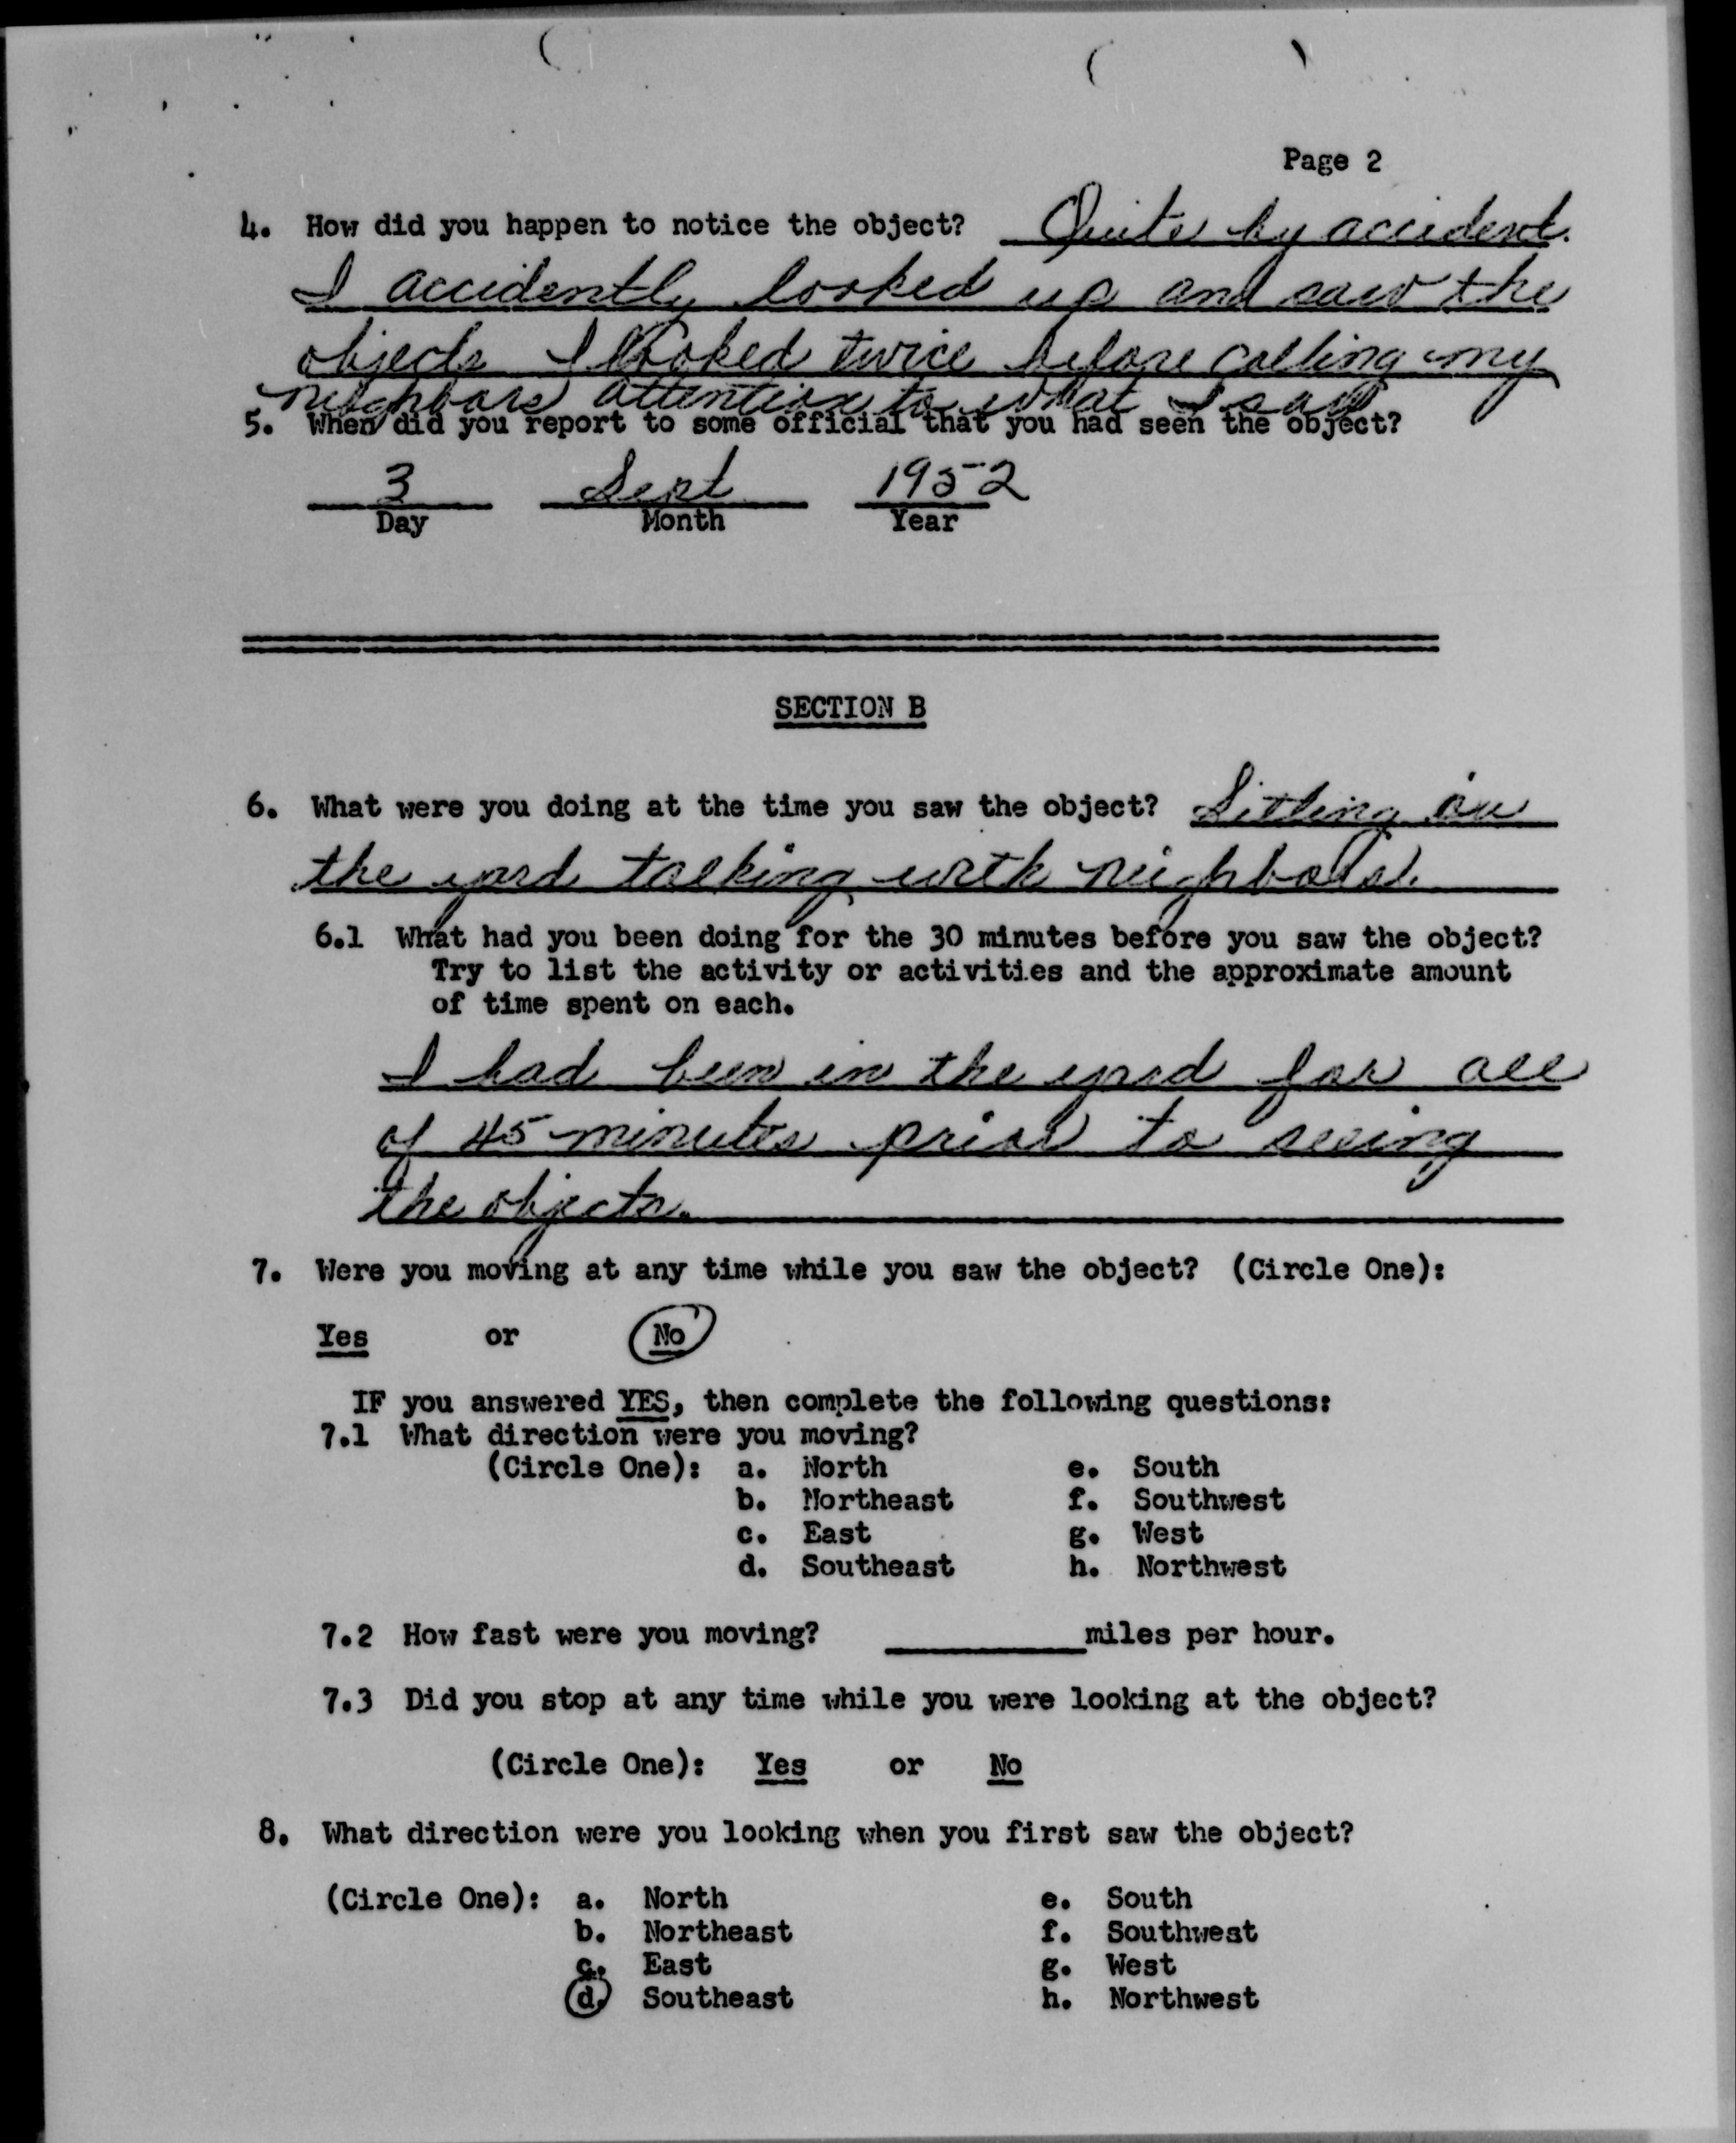 Page 2
4. How did you happen to notice the object? Quite by accident.
I accidently looked up and saw the
objects I looked twice before calling my
neighbors attention to what I saw
5. When did you report to some official that you had seen the object?
3 Sept 1952
Day Month Year
SECTION B
6. What were you doing at the time you saw the object? Sitting in
the yard talking with neighbors.
6.1 What had you been doing for the 30 minutes before you saw the object?
Try to list the activity or activities and the approximate amount
of time spent on each.
I had been in the yard for all
of 45 minutes prior to seeing
the objects.
7. Were you moving at any time while you saw the object? (Circle One):
Yes or No
IF you answered YES, then complete the following questions:
7.1 What direction were you moving?
(Circle One): a. North e. South
b. Northeast f. Southwest
c. East g. West
d. Southeast h. Northwest
7.2 How fast were you moving? miles per hour.
7.3 Did you stop at any time while you were looking at the object?
(Circle One): Yes or No
8. What direction were you looking when you first saw the object?
(Circle One): a. North e. South
b. Northeast f. Southwest
c. East g. West
d. Southeast h. Northwest